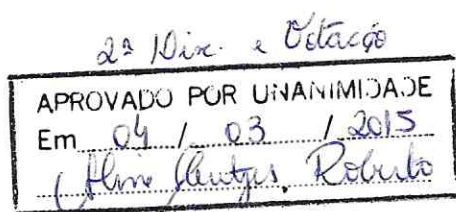 2ª Disc. e Votação
APROVADO POR UNANIMIDADE
Em 04 / 03 / 2015
Aline Roberto